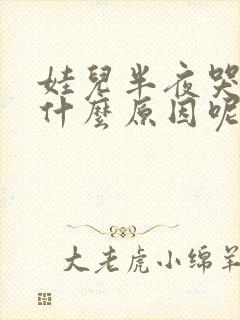 娃兒半夜哭
什麼原因呢
大老虎小绵羊